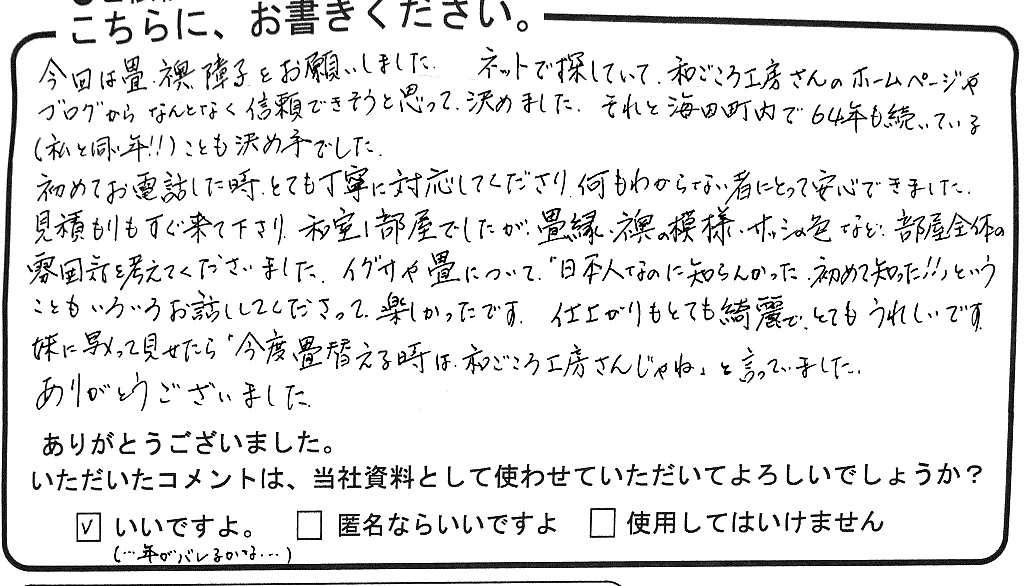 こちらに、お書きください。
今回は畳、襖、障子とお願いしました。 ネットで探していて、和ごころ工房さんのホームページや
ブログからなんとなく信頼できそうと思って、決めました。それと海田町内で64年も続いている
(私と同い年!!)ことも決め手でした。
初めてお電話した時、とても丁寧に対応してくださり、何もわからない者にとって安心できました。
見積もりもすぐ来て下さり、和室1部屋でしたが、畳縁、襖の模様、サッシの色など、部屋全体の
雰囲気を考えてくださいました。イグサや畳について、「日本人なのに知らんかった、初めて知った!!」という
こともいろいろお話ししてくださって、楽しかったです。 仕上がりもとても綺麗で、とてもうれしいです。
妹に見せたら「今度畳替える時は、和ごころ工房さんじゃね」と言っていました。
ありがとうございました。
ありがとうございました。
いただいたコメントは、当社資料として使わせていただいてよろしいでしょうか?
☑ いいですよ。 □ 匿名ならいいですよ □ 使用してはいけません
(…年がバレるかな…)